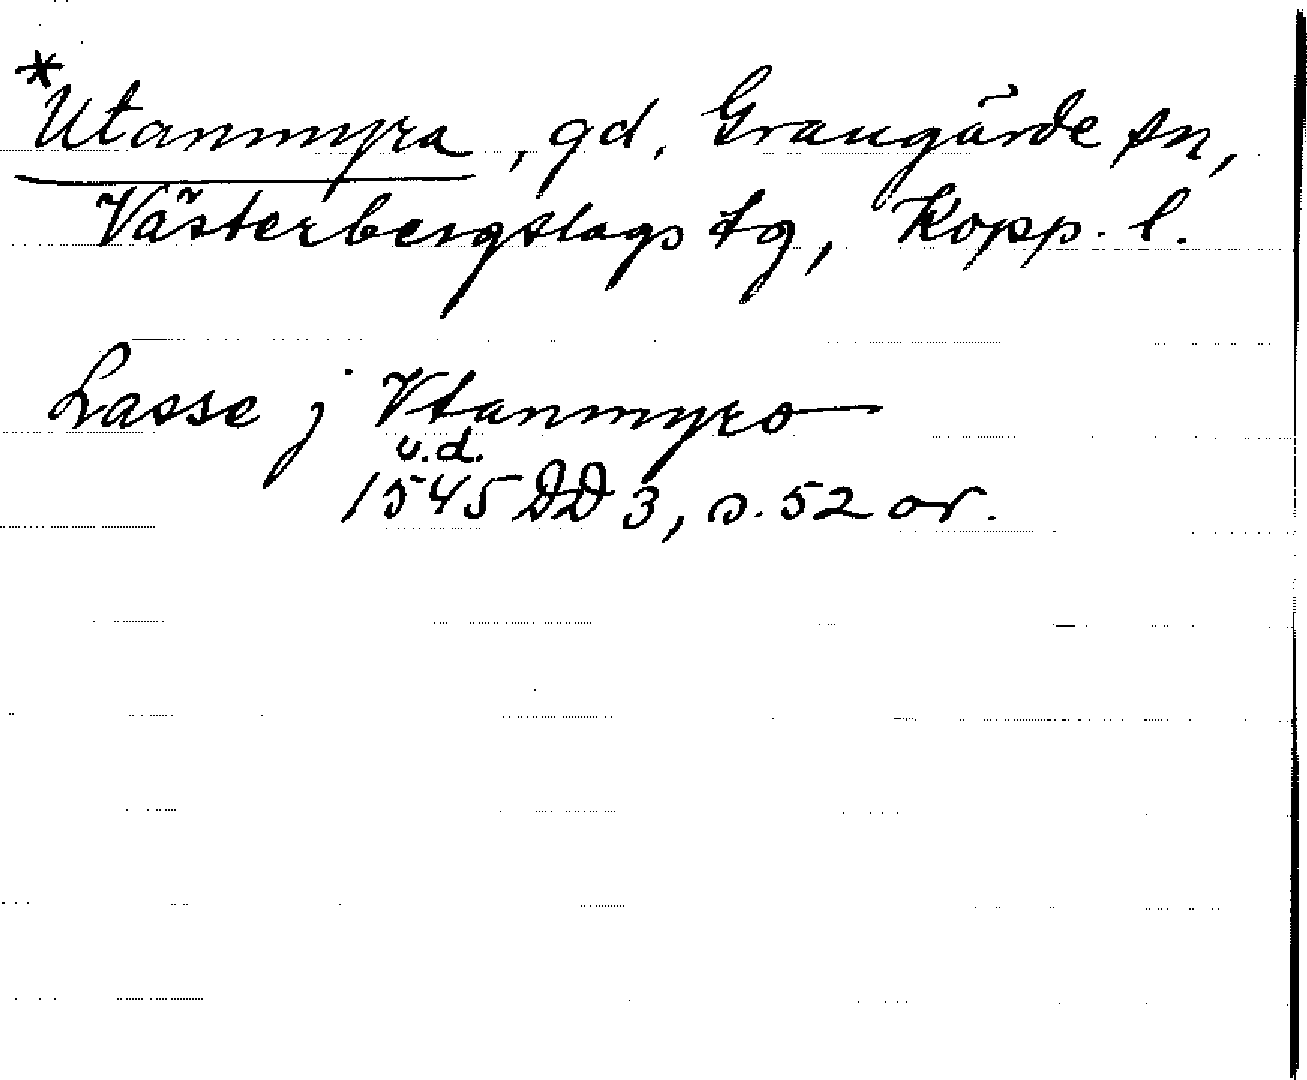 *Utanmyra, gd, Grangärde sn,
Västerbergslags tg, Kopp. l.
Lasse j Vtanmyro
u.d.
1545 DD 3, s. 52 or.